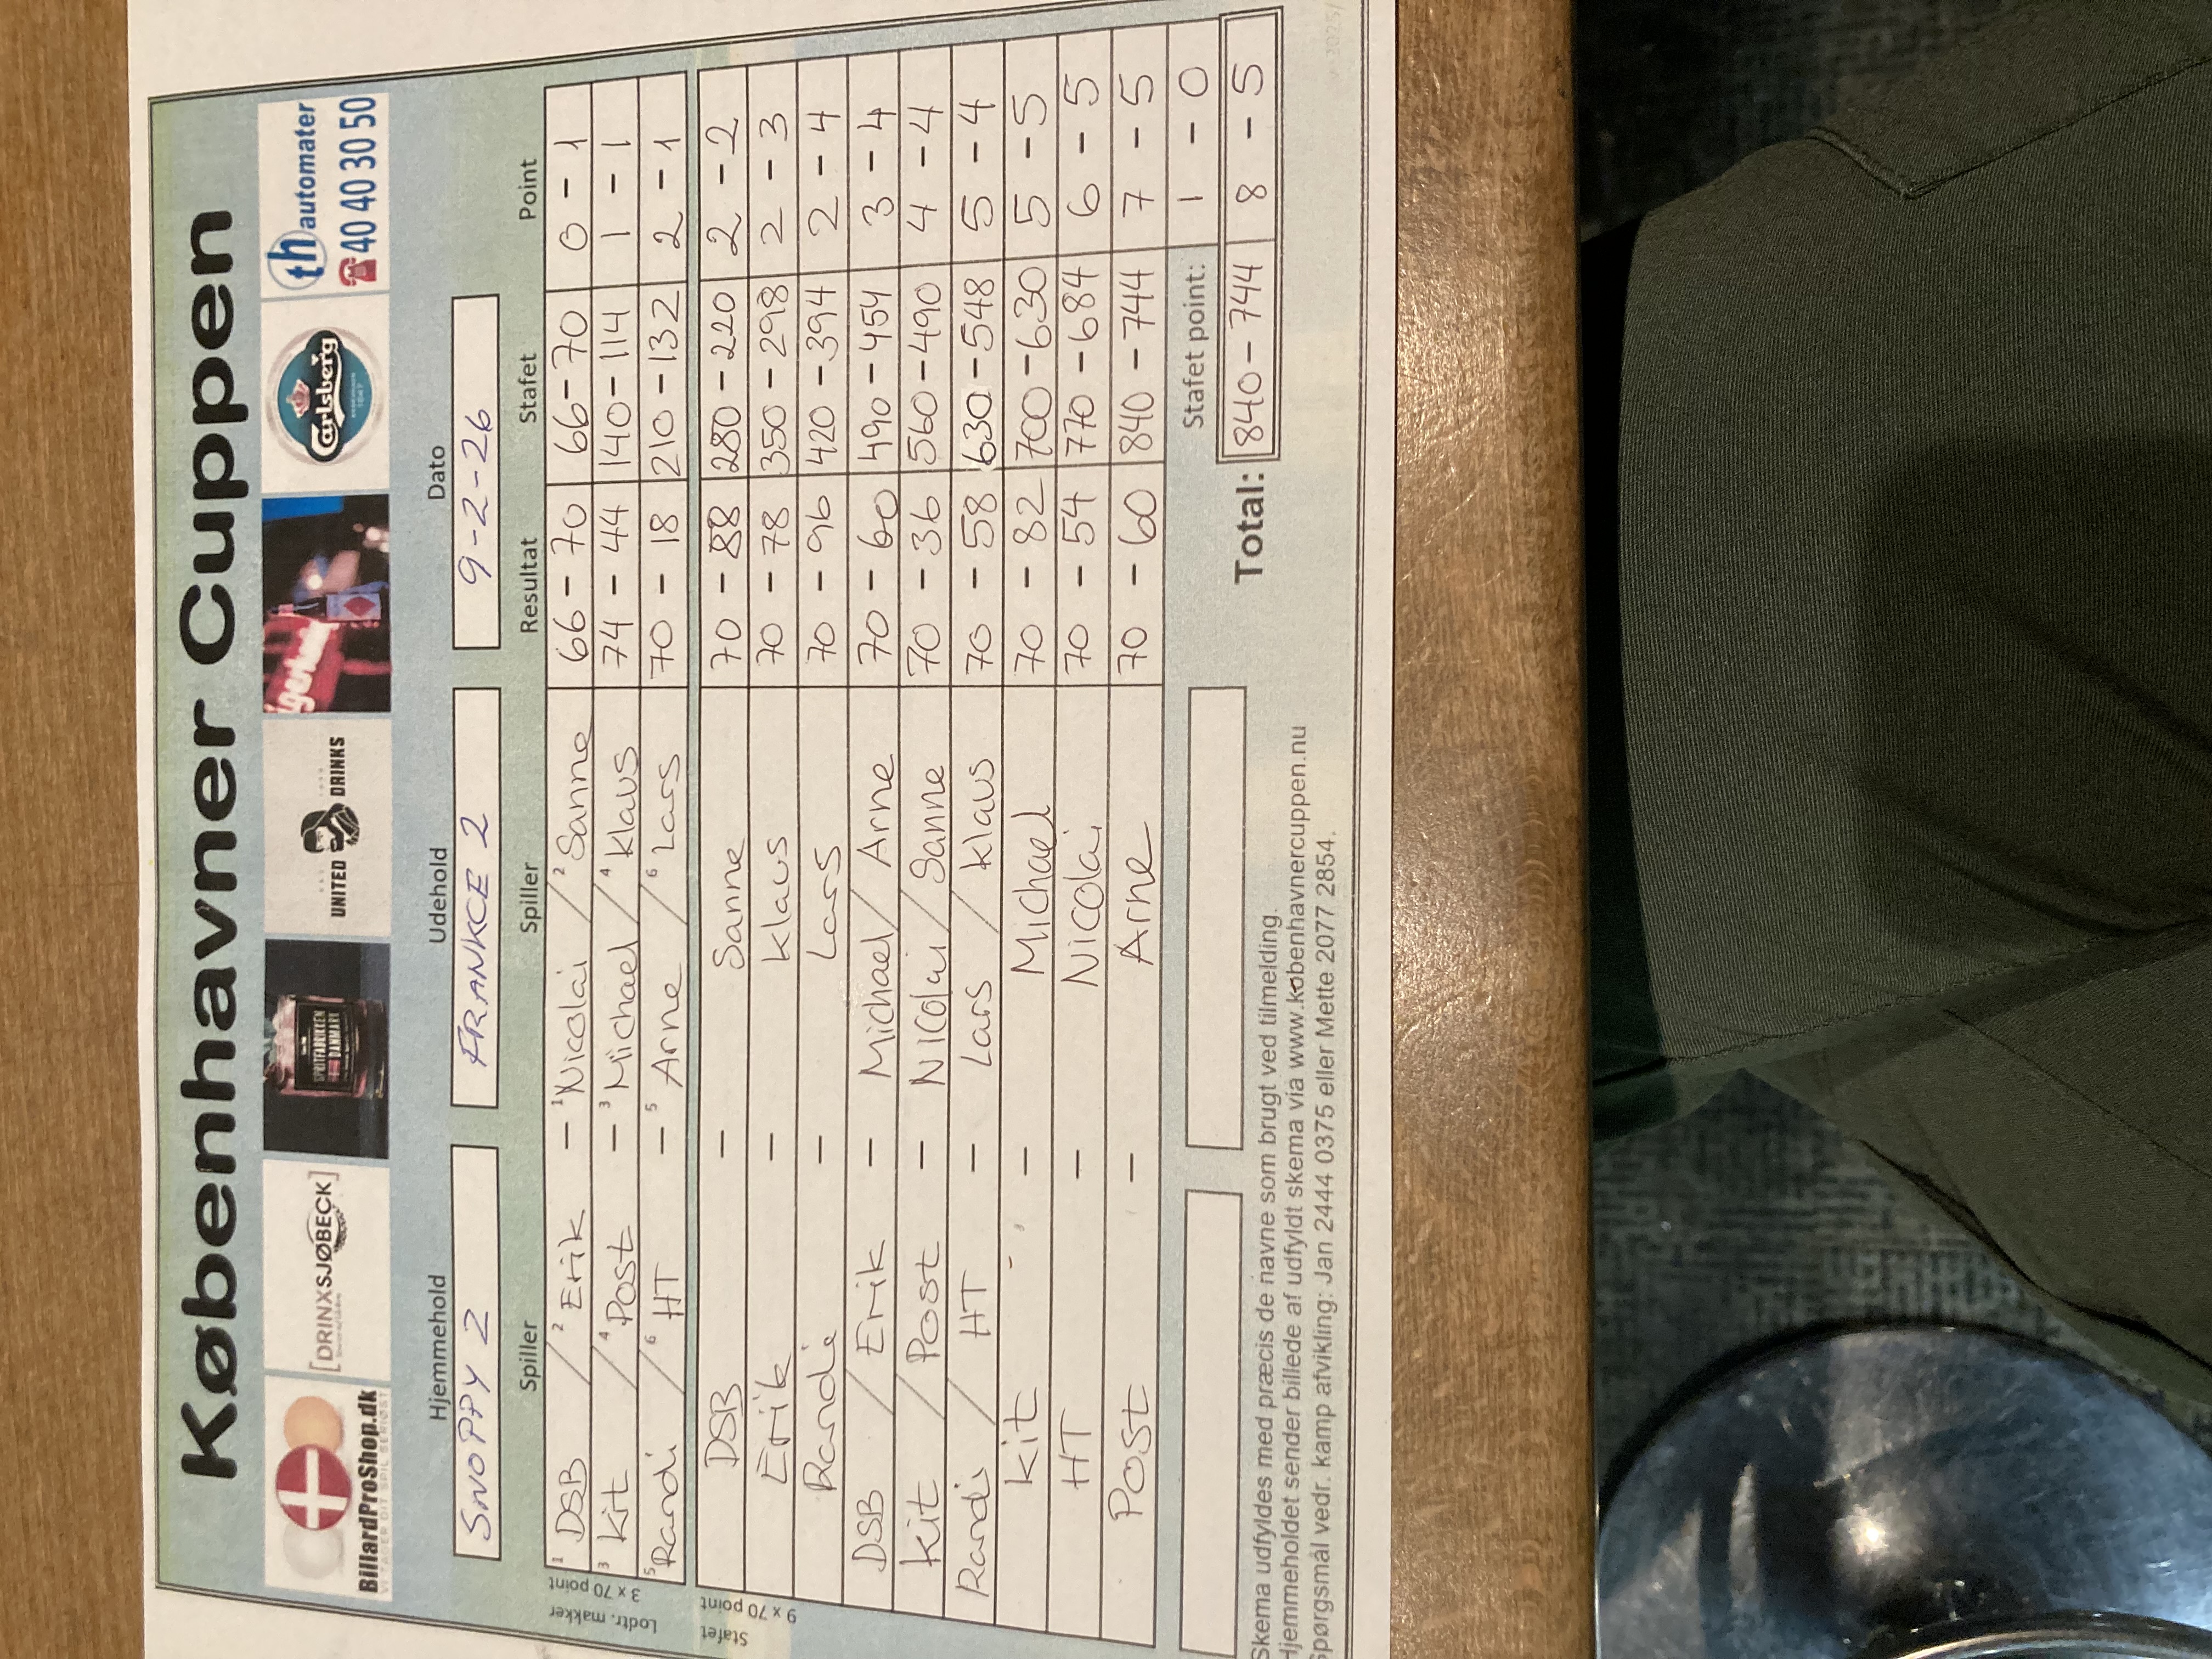 Københavner Cuppen
BillardProShop.dk
VI TAGER DIT SPIL SERIØST
[DRINXSJØBECK]
SPRITFABRIKKEN
DANMARK
UNITED DRINKS
Carlsberg
th automater
40 40 30 50
Hjemmehold Udehold Dato
SNOPPY 2 FRANKCE 2 9-2-26
Spiller Spiller Resultat Stafet Point
Lodtr. makker
3 x 70 point
1 DSB / 2 Erik - 1 Nicolai / 2 Sanne 66 - 70 66-70 0 - 1
3 Kit / 4 Post - 3 Michael / 4 Klaus 74 - 44 140-114 1 - 1
5 Randi / 6 HT - 5 Arne / 6 Lars 70 - 18 210-132 2 - 1
Stafet
9 x 70 point
DSB - Sanne 70 - 88 280-220 2 - 2
Erik - Klaus 70 - 78 350-298 2 - 3
Randi - Lars 70 - 96 420-394 2 - 4
DSB / Erik - Michael / Arne 70 - 60 490-454 3 - 4
Kit / Post - Nicolai / Sanne 70 - 36 560-490 4 - 4
Randi / HT - Lars / Klaus 70 - 58 630-548 5 - 4
Kit - Michael 70 - 82 700-630 5 - 5
HT - Nicolai 70 - 54 770-684 6 - 5
Post - Arne 70 - 60 840-744 7 - 5
Stafet point: 1 - 0
Total: 840-744 8 - 5
Skema udfyldes med præcis de navne som brugt ved tilmelding.
Hjemmeholdet sender billede af udfyldt skema via www.københavnercuppen.nu
Spørgsmål vedr. kamp afvikling: Jan 2444 0375 eller Mette 2077 2854.